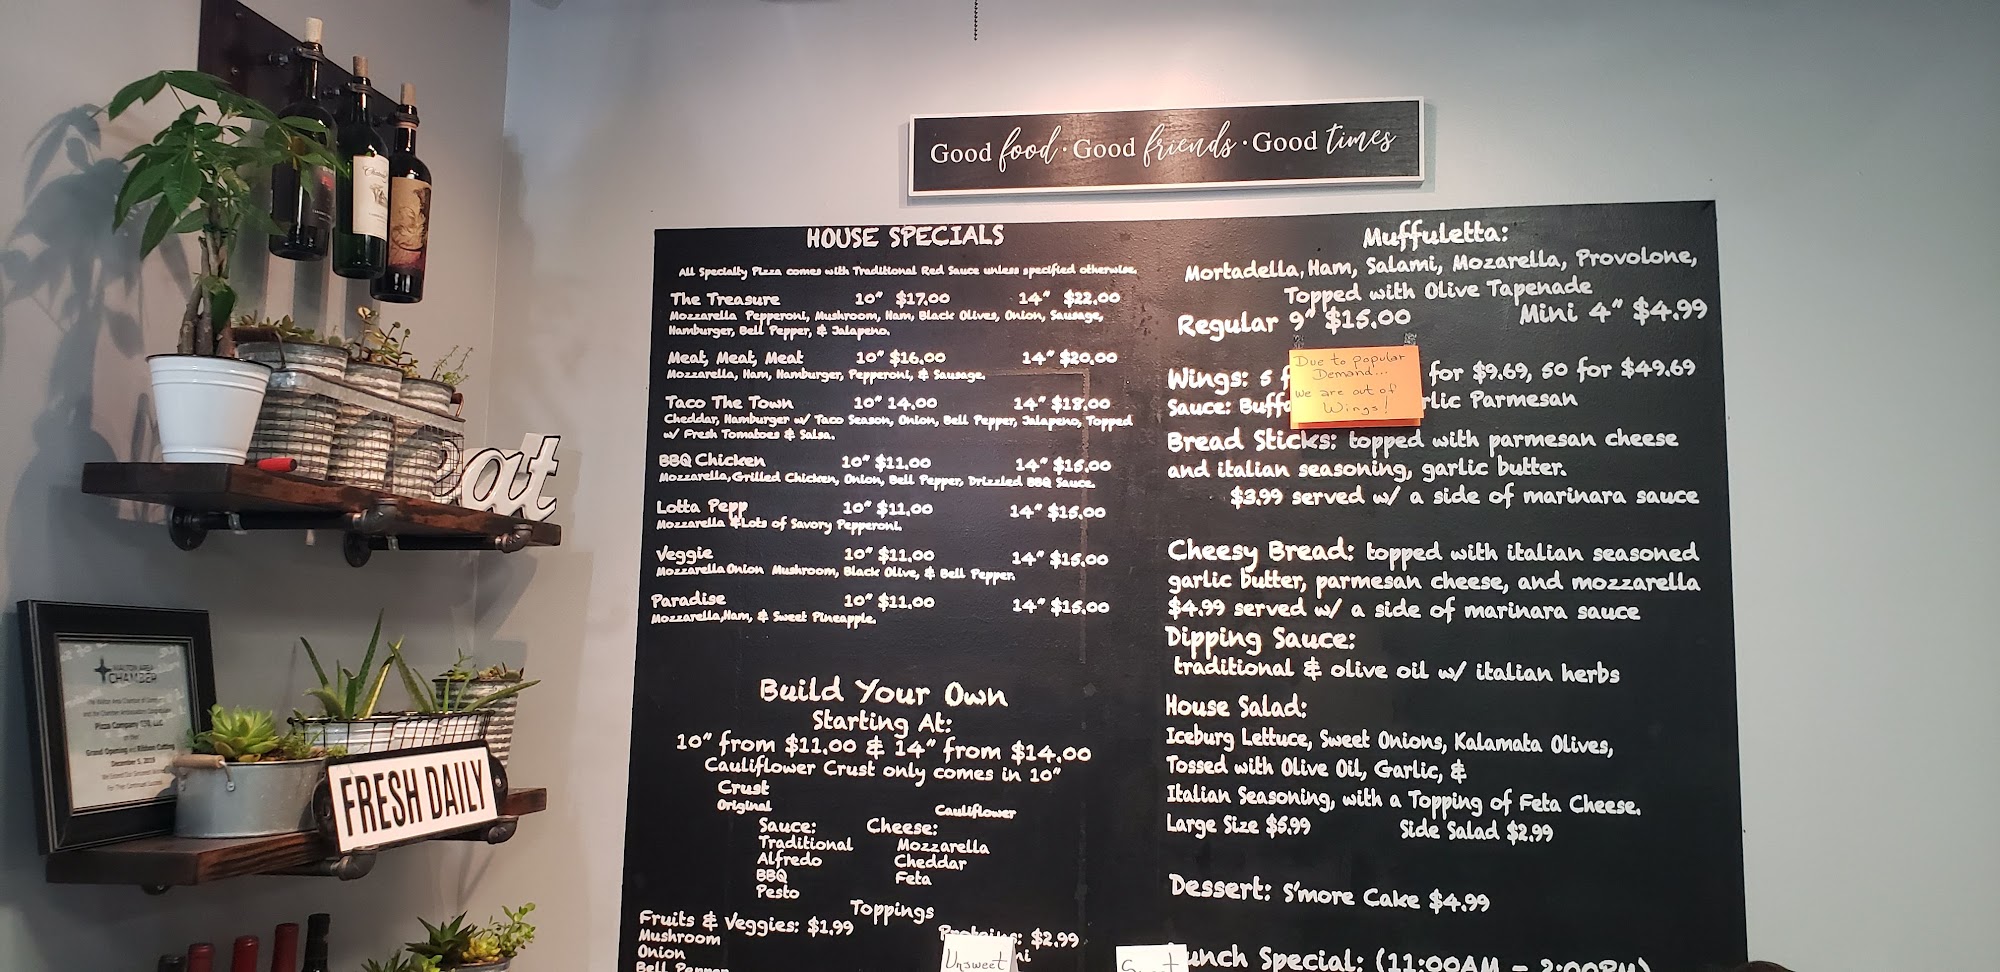 Good food · Good friends · Good times
HOUSE SPECIALS
All Specialty Pizza comes with Traditional Red Sauce unless specified otherwise.
The Treasure 10" $17.00 14" $22.00
Mozzarella Pepperoni, Mushroom, Ham, Black Olives, Onion, Sausage,
Hamburger, Bell Pepper, & Jalapeno.
Meat, Meat, Meat 10" $16.00 14" $20.00
Mozzarella, Ham, Hamburger, Pepperoni, & Sausage.
Taco The Town 10" 14.00 14" $18.00
Cheddar, Hamburger w/ Taco Season, Onion, Bell Pepper, Jalapeno, Topped
w/ Fresh Tomatoes & Salsa.
BBQ Chicken 10" $11.00 14" $15.00
Mozzarella, Grilled Chicken, Onion, Bell Pepper, Drizzled BBQ Sauce.
Lotta Pepp 10" $11.00 14" $15.00
Mozzarella & Lots of Savory Pepperoni.
Veggie 10" $11.00 14" $15.00
Mozzarella Onion Mushroom, Black Olive, & Bell Pepper.
Paradise 10" $11.00 14" $15.00
Mozzarella, Ham, & Sweet Pineapple.
Build Your Own
Starting At:
10" from $11.00 & 14" from $14.00
Cauliflower Crust only comes in 10"
Crust
Original Cauliflower
Sauce: Cheese:
Traditional Mozzarella
Alfredo Cheddar
BBQ Feta
Pesto
Toppings
Fruits & Veggies: $1.99 Proteins: $2.99
Mushroom
Onion
Bell Pepper
Unsweet
Muffuletta:
Mortadella, Ham, Salami, Mozarella, Provolone,
Topped with Olive Tapenade
Regular 9" $15.00 Mini 4" $4.99
Wings: 5 for $9.69, 50 for $49.69
Sauce: Parmesan
Due to popular
Demand...
we are out of
Wings!
Bread Sticks: topped with parmesan cheese
and italian seasoning, garlic butter.
$3.99 served w/ a side of marinara sauce
Cheesy Bread: topped with italian seasoned
garlic butter, parmesan cheese, and mozzarella
$4.99 served w/ a side of marinara sauce
Dipping Sauce:
traditional & olive oil w/ italian herbs
House Salad:
Iceburg Lettuce, Sweet Onions, Kalamata Olives,
Tossed with Olive Oil, Garlic, &
Italian Seasoning, with a Topping of Feta Cheese.
Large Size $5.99 Side Salad $2.99
Dessert: S'more Cake $4.99
Special: (11:00AM - 2:00PM)
eat
FRESH DAILY
WALTON AREA
CHAMBER
Pizza Company
Grand Opening and Ribbon Cutting
December 5, 2019